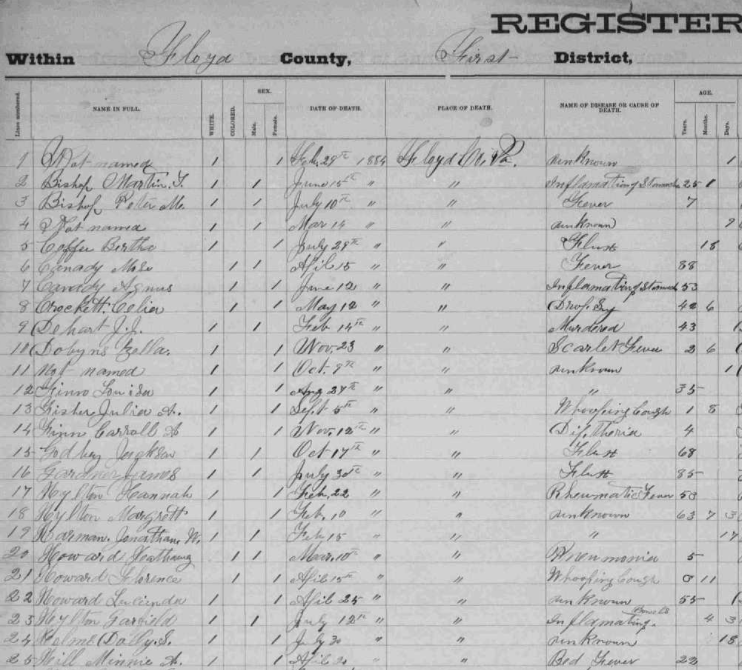 REGISTER
Within Floyd County, First District,
Lines numbered. NAME IN FULL. WHITE. COLORED. SEX. Male. Female. DATE OF DEATH. PLACE OF DEATH. NAME OF DISEASE OR CAUSE OF DEATH. AGE. Years. Months. Days.
1 Not named 1 1 Feb. 28th 1884 Floyd Co. Va. unknown 1
2 Bishop Martin T. 1 1 June 15th " " Inflamation of Stomach 25 1
3 Bishop Peter M. 1 1 July 10th " " Fever 7
4 Not named 1 1 Mar 14 " " unknown
5 Coffee Bertha 1 1 July 28th " " Flux 18
6 Canady 1 1 April 15 " " Fever 88
7 Canady Agnus 1 1 June 12 " " Inflamating of Stomach 53
8 Crockett Celia 1 1 May 12 " " Dropsy 42 6
9 Dehart J. J. 1 1 Feb 14th " " Murdered 43
10 Dobyns Zella 1 1 Nov. 23 " " Scarlet Fever 2 6
11 Not named 1 1 Oct. 8th " " unknown 1
12 Louisa 1 1 Aug 27th " " " 35
13 Julia A. 1 1 Sept 5th " " Whooping Cough 1 8
14 Carroll A 1 1 Nov. 12th " " Diptheria 4
15 Godbey Jackson 1 1 Oct 17th " " Flux 68
16 Gardner James 1 1 July 30th " " Flux 85
17 Hylton Hannah 1 1 Feb. 22 " " Rheumatic Fever 53
18 Hylton Margrett 1 1 Feb. 10 " " unknown 63 7 3
19 Harman Jonathan W. 1 1 Feb 15 " " " 17
20 Howard 1 1 Mar. 10th " " Pneumonia 5
21 Howard Florence 1 1 April 15th " " Whooping Cough 0 11
22 Howard Lucinda 1 1 April 25 " " unknown 55
23 Hylton Garfield 1 1 July 12th " " Inflamating Bowels 4 3
24 Helms Dally S. 1 1 July 30 " " unknown 18
25 Hill Minnie A. 1 1 April " " Fever 22